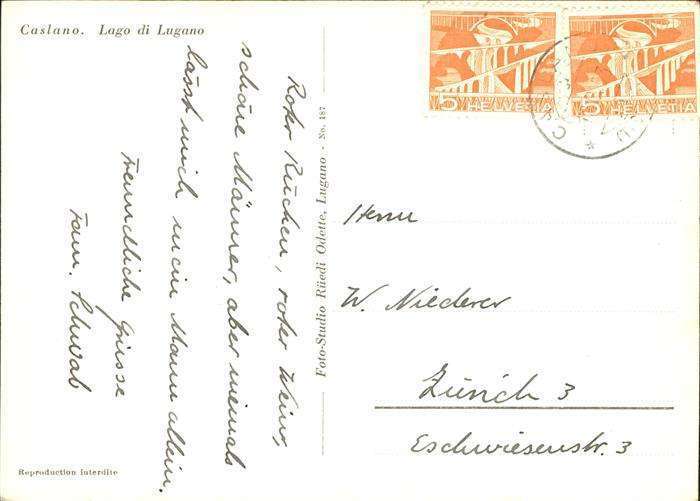 Caslano. Lago di Lugano
Roter Kuchen, roter Wein,
schöne Männer, aber niemals
lässt mich mein Mann allein.
Freundliche Grüsse
Fam. Schwab
Foto-Studio Rüedi Odette, Lugano - No. 187
5 HELVETIA
5 HELVETIA
Herrn
W. Niederer
Zürich 3
Eschwiesenstr. 3
Reproduction interdite